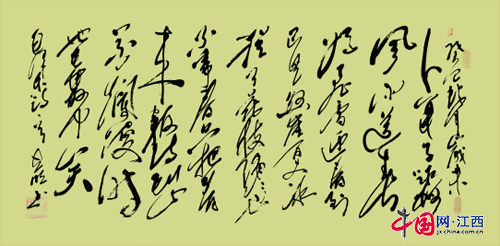 卜算子咏梅
风雨送春
归飞雪迎春到
已是悬崖百丈冰
犹有花枝俏俏也
不争春只把春
来报待到山
花烂漫时
她在丛中笑
中国网·江西
jx.china.com.cn